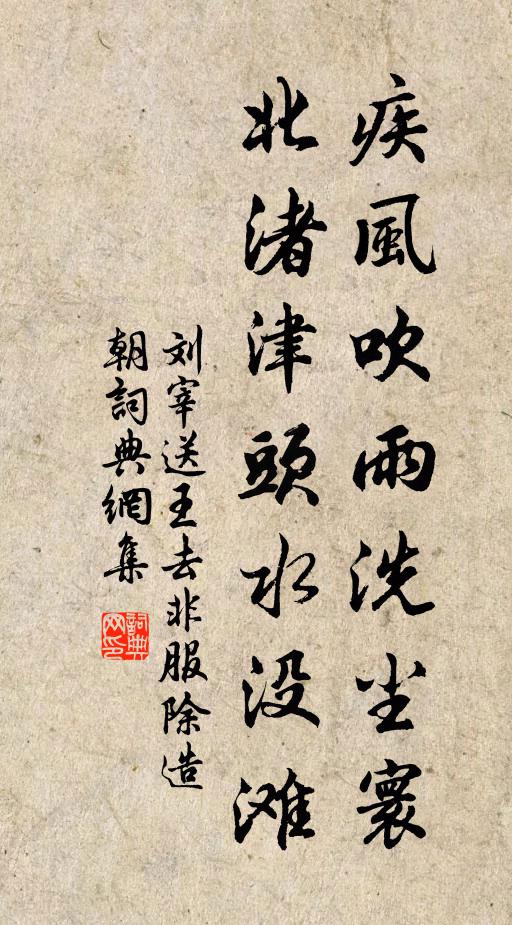 疾風吹雨洗尘寰
北渚津頭水没滩
刘宰送王去非服除造
朝詞典網集
詞典
网印